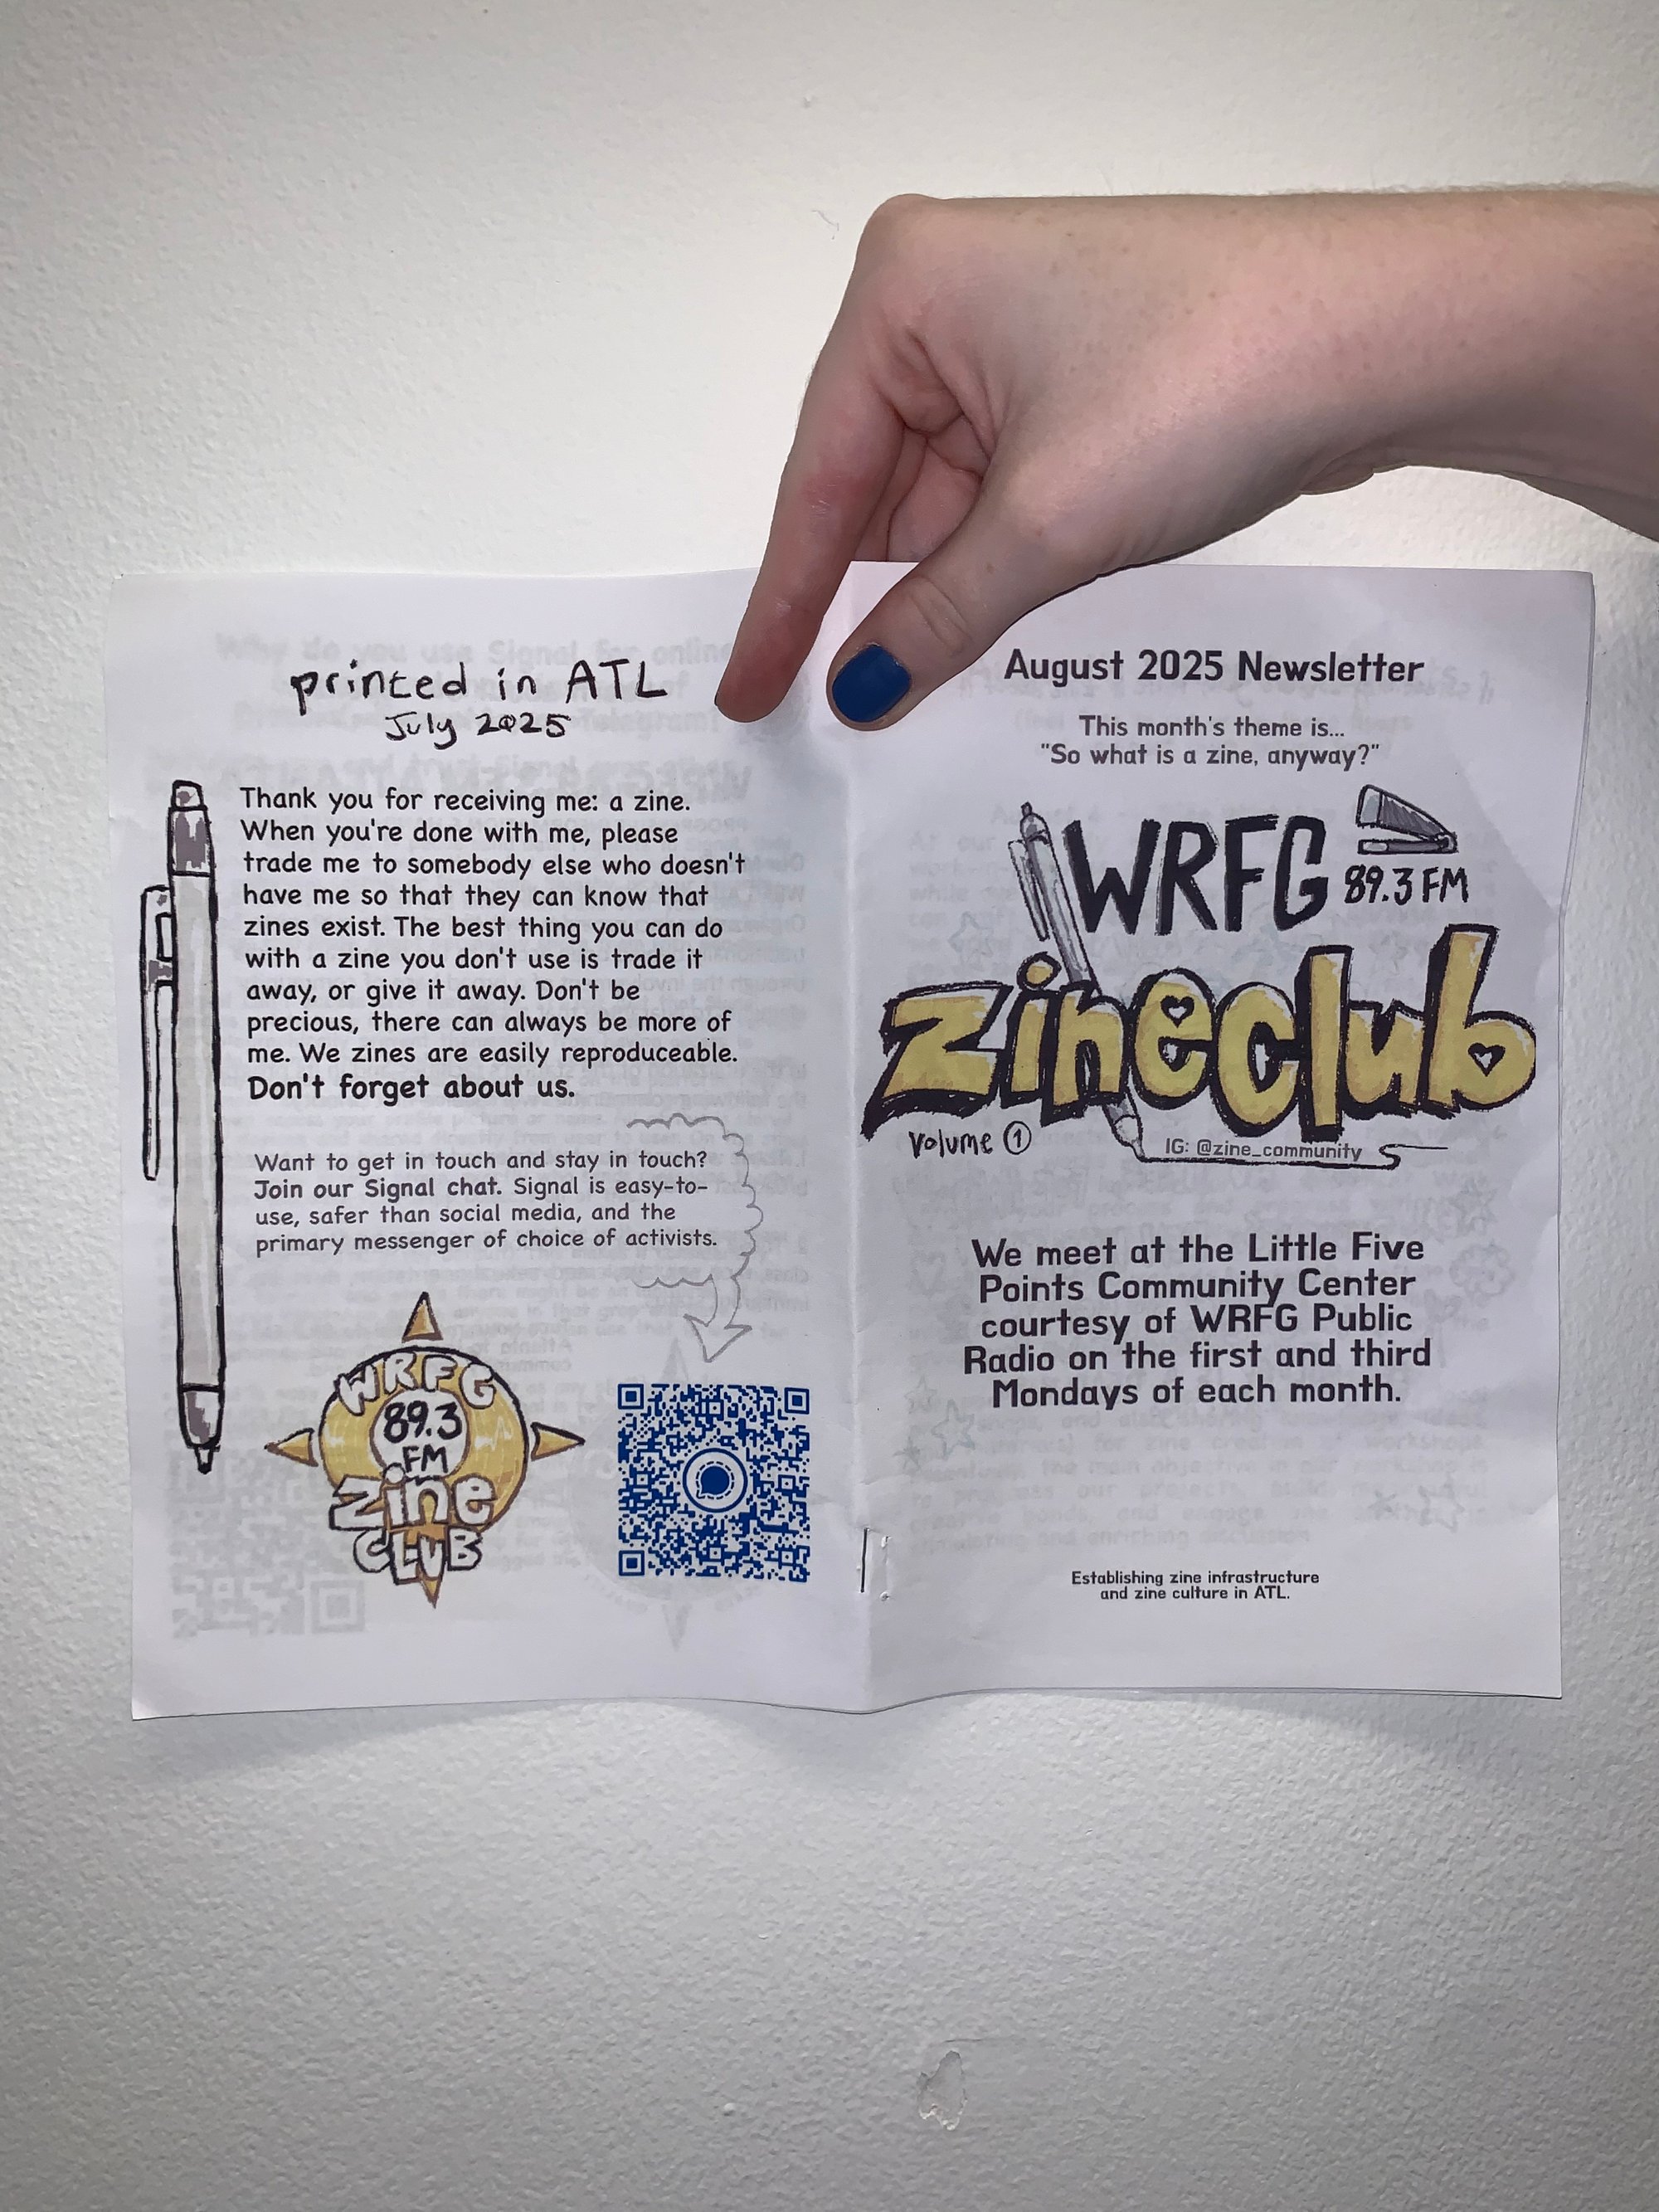 printed in ATL
July 2025
Thank you for receiving me: a zine.
When you're done with me, please
trade me to somebody else who doesn't
have me so that they can know that
zines exist. The best thing you can do
with a zine you don't use is trade it
away, or give it away. Don't be
precious, there can always be more of
me. We zines are easily reproduceable.
Don't forget about us.
Want to get in touch and stay in touch?
Join our Signal chat. Signal is easy-to-
use, safer than social media, and the
primary messenger of choice of activists.
WRFG
89.3
FM
Zine
CLUB
August 2025 Newsletter
This month's theme is...
"So what is a zine, anyway?"
WRFG
89.3 FM
zineclub
volume 1
IG: @zine_community
We meet at the Little Five
Points Community Center
courtesy of WRFG Public
Radio on the first and third
Mondays of each month.
Establishing zine infrastructure
and zine culture in ATL.